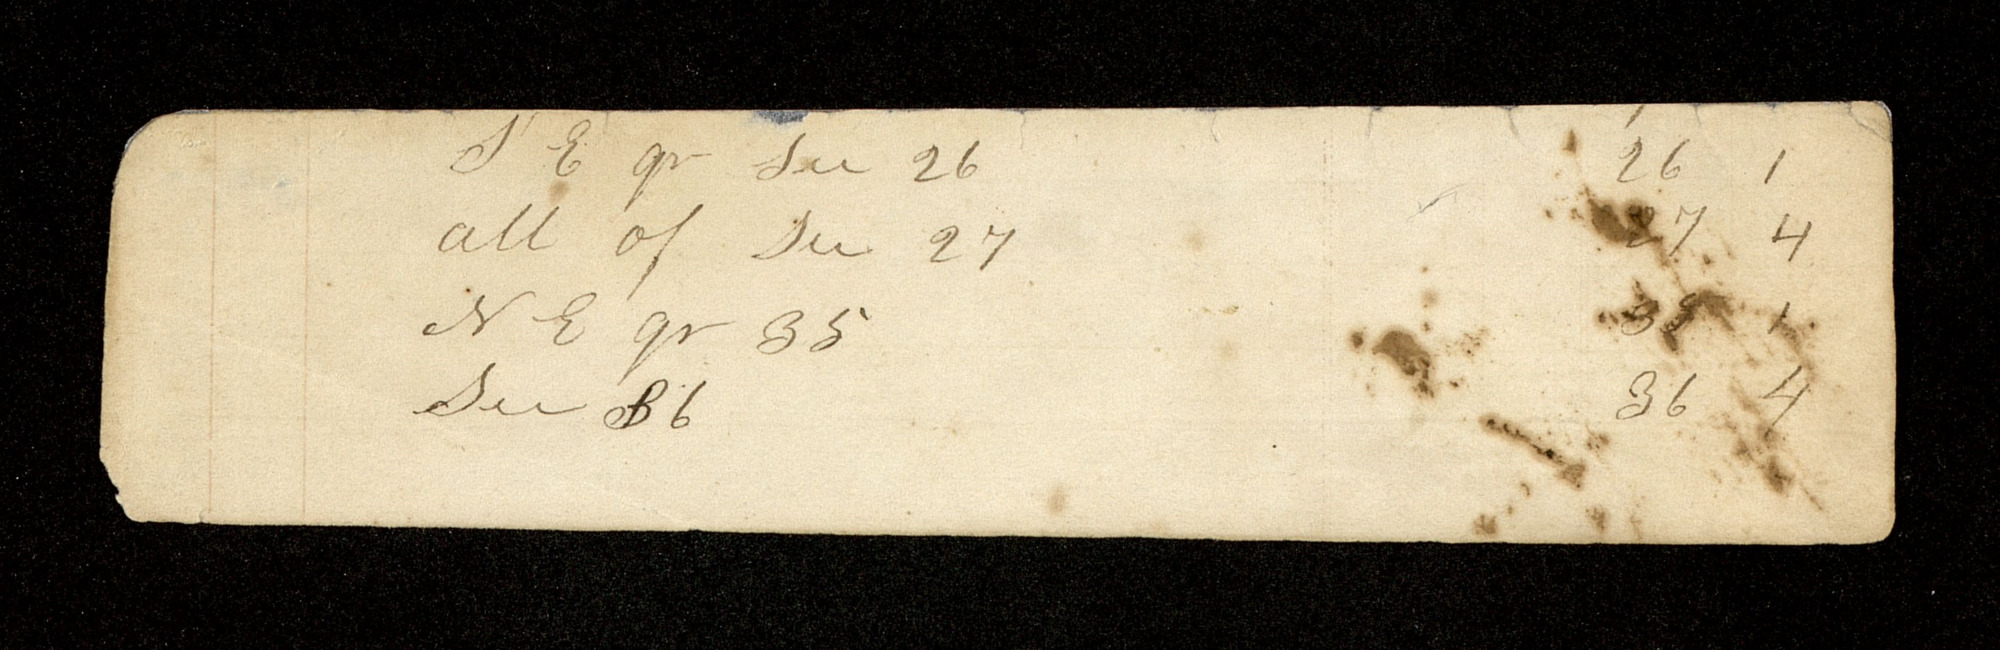 S E qr Sec 26 26 1
all of Sec 27 27 4
N E qr 35 35 1
Sec 36 36 4